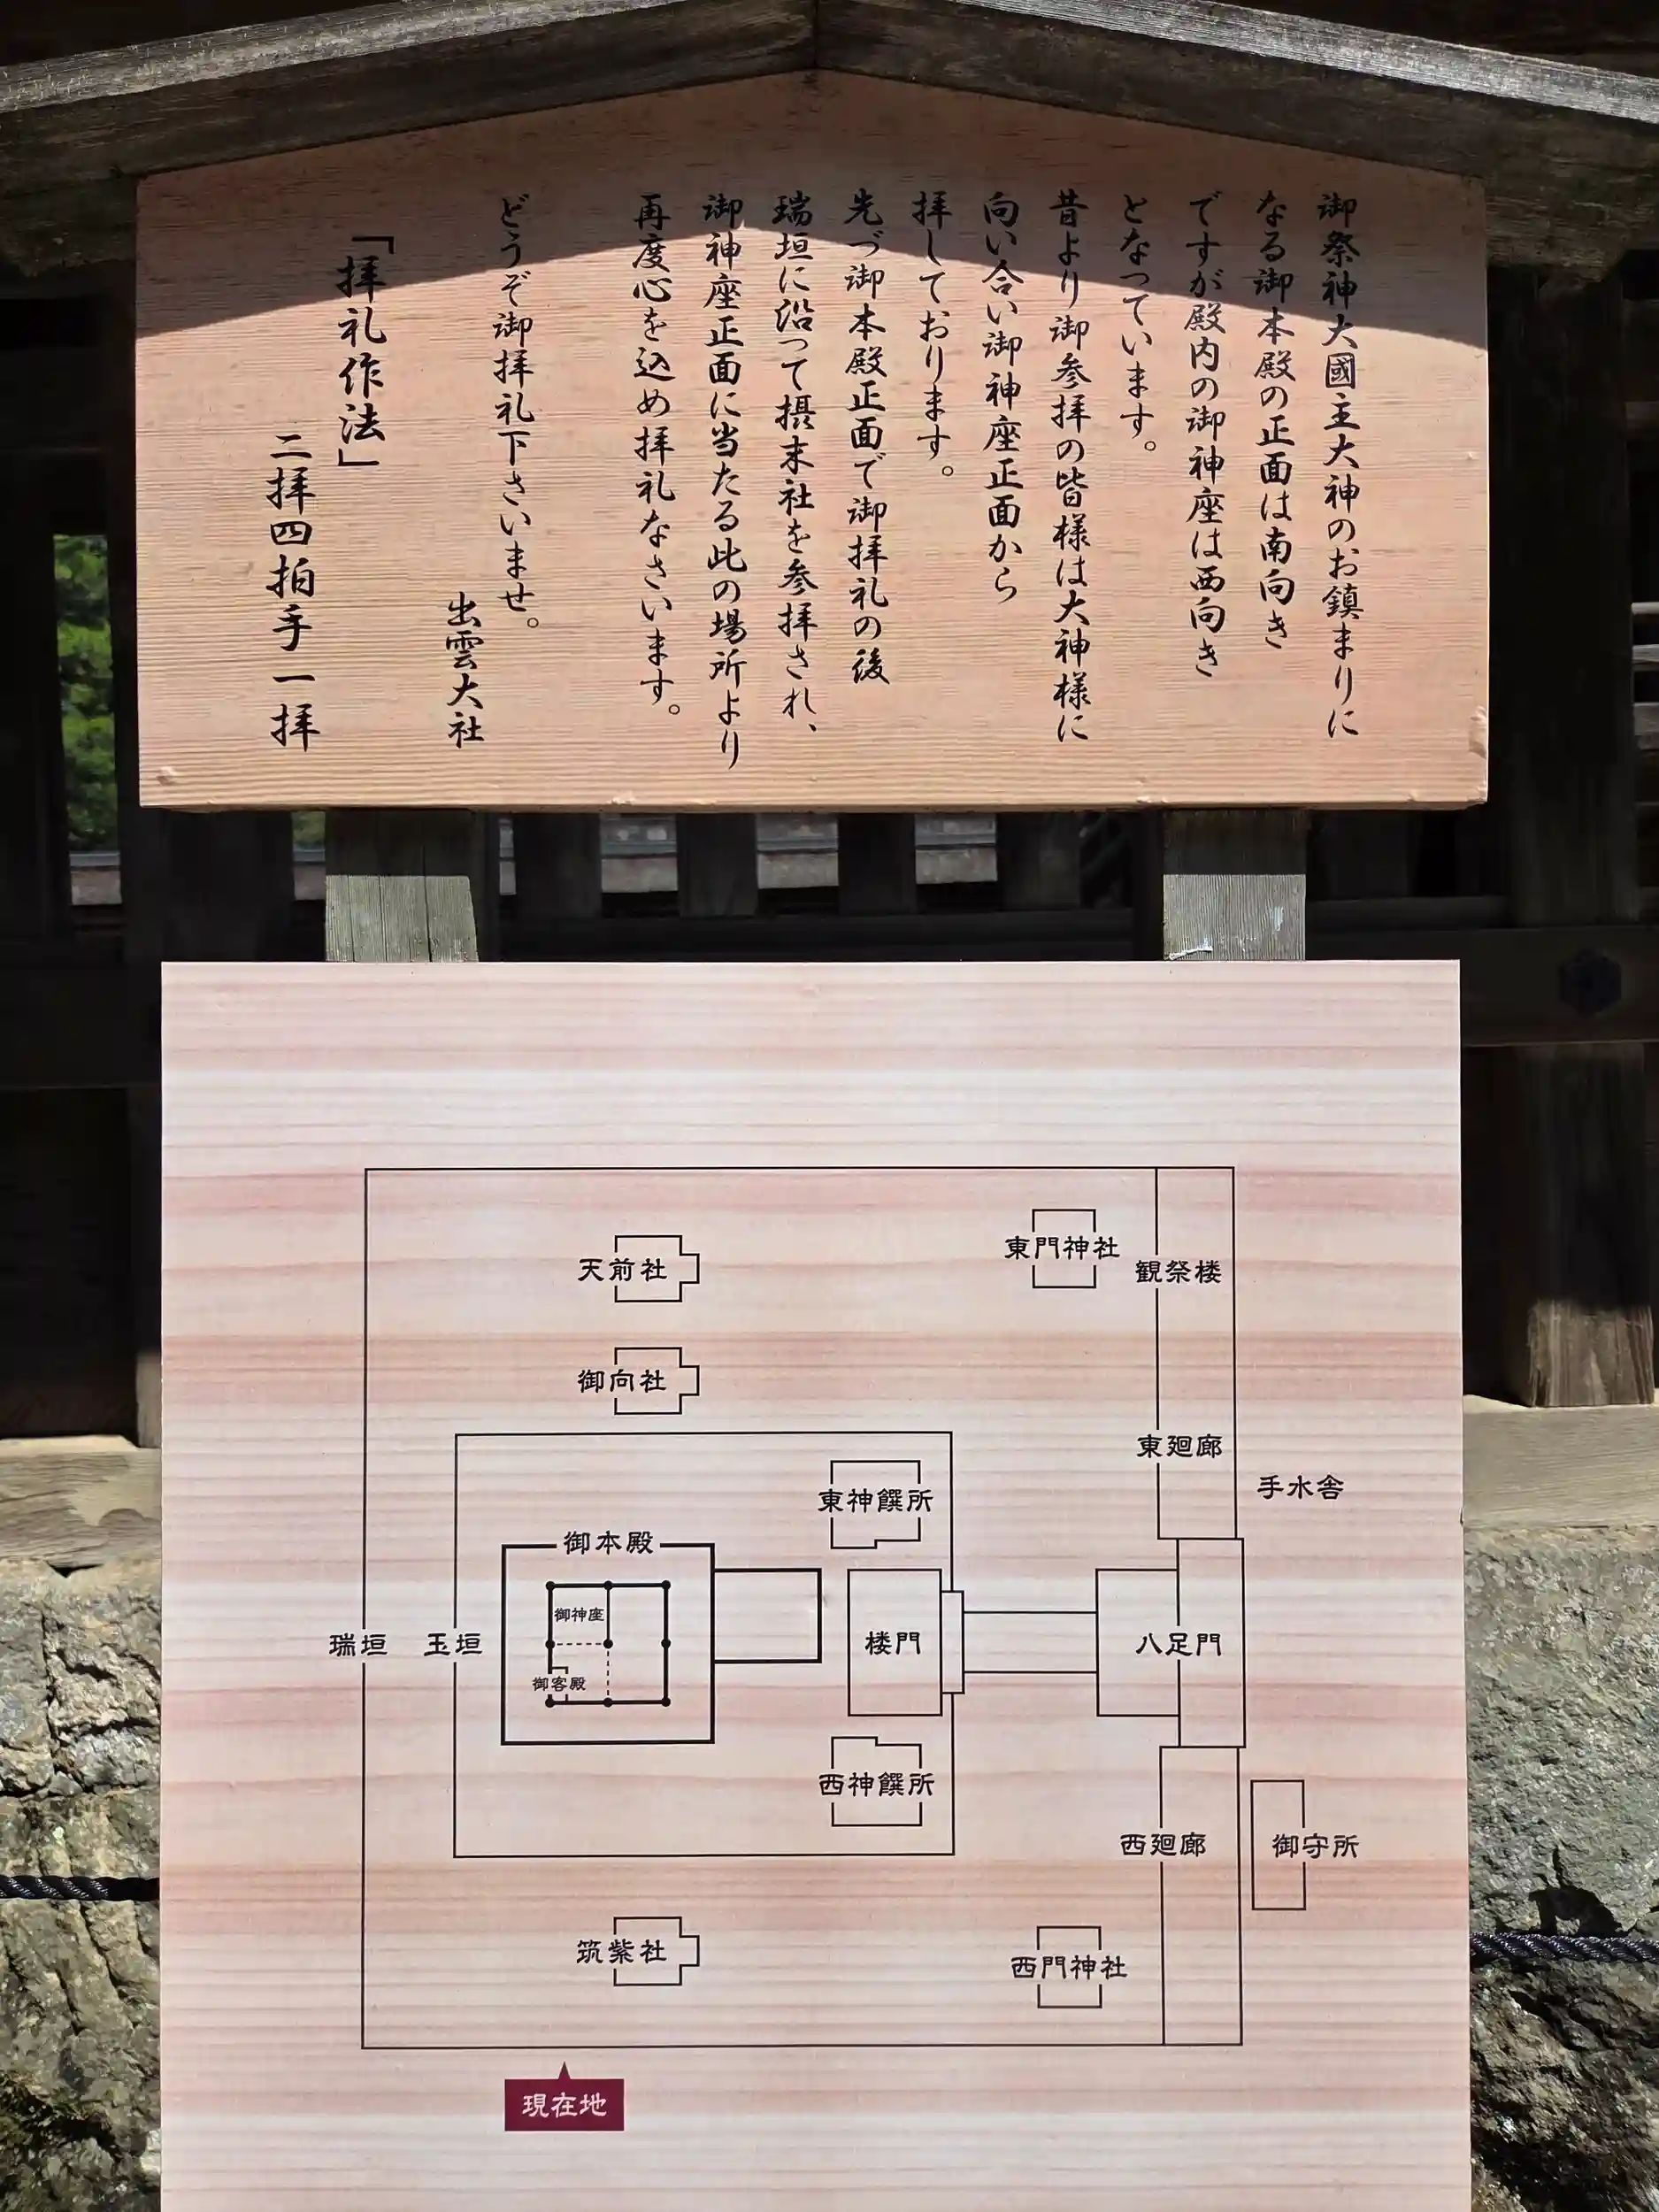 御祭神大國主大神のお鎮まりに
なる御本殿の正面は南向き
ですが殿内の御神座は西向き
となっています。
昔より御参拝の皆様は大神様に
向い合い御神座正面から
拝しております。
先づ御本殿正面で御拝礼の後
瑞垣に沿って摂末社を参拝され、
御神座正面に当たる此の場所より
再度心を込め拝礼なさいます。
どうぞ御拝礼下さいませ。
出雲大社
「拝礼作法」
二拝四拍手一拝
天前社
東門神社
観祭楼
御向社
東廻廊
手水舎
東神饌所
御本殿
御神座
瑞垣
玉垣
楼門
八足門
御客殿
西神饌所
西廻廊
御守所
筑紫社
西門神社
現在地